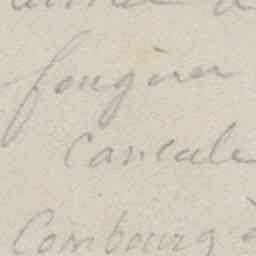 fougères
Cancale
Combourg à